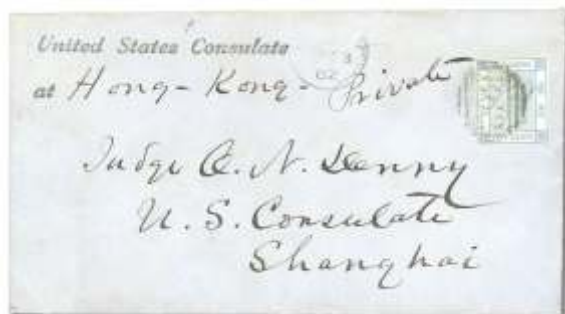 United States Consulate
at Hong-Kong - Private
Judge O. N. Denny
U. S. Consulate
Shanghai